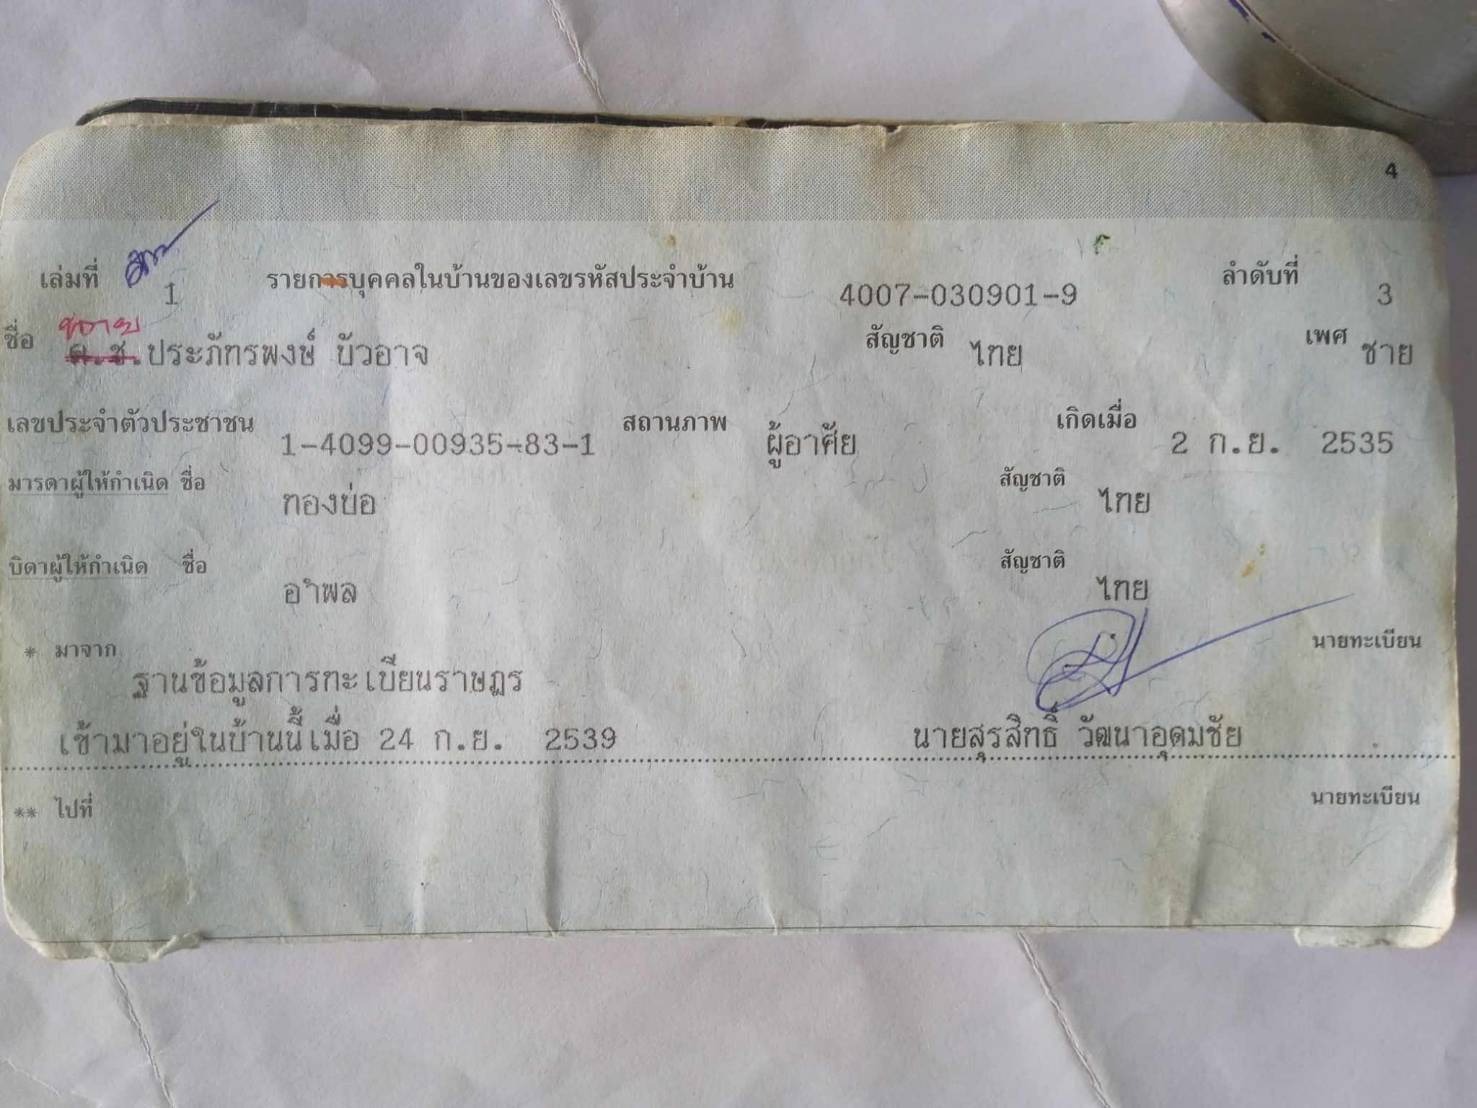 4
เล่มที่ 1 รายการบุคคลในบ้านของเลขรหัสประจำบ้าน 4007-030901-9 ลำดับที่ 3
นาย
ชื่อ ด.ช.ประภัทรพงษ์ บัวอาจ สัญชาติ ไทย เพศ ชาย
เลขประจำตัวประชาชน 1-4099-00935-83-1 สถานภาพ ผู้อาศัย เกิดเมื่อ 2 ก.ย. 2535
มารดาผู้ให้กำเนิด ชื่อ ทองย่อ สัญชาติ ไทย
บิดาผู้ให้กำเนิด ชื่อ อำพล สัญชาติ ไทย
* มาจาก นายทะเบียน
ฐานข้อมูลการทะเบียนราษฎร
เข้ามาอยู่ในบ้านนี้เมื่อ 24 ก.ย. 2539 นายสุรสิทธิ์ วัฒนาอุดมชัย
** ไปที่ นายทะเบียน